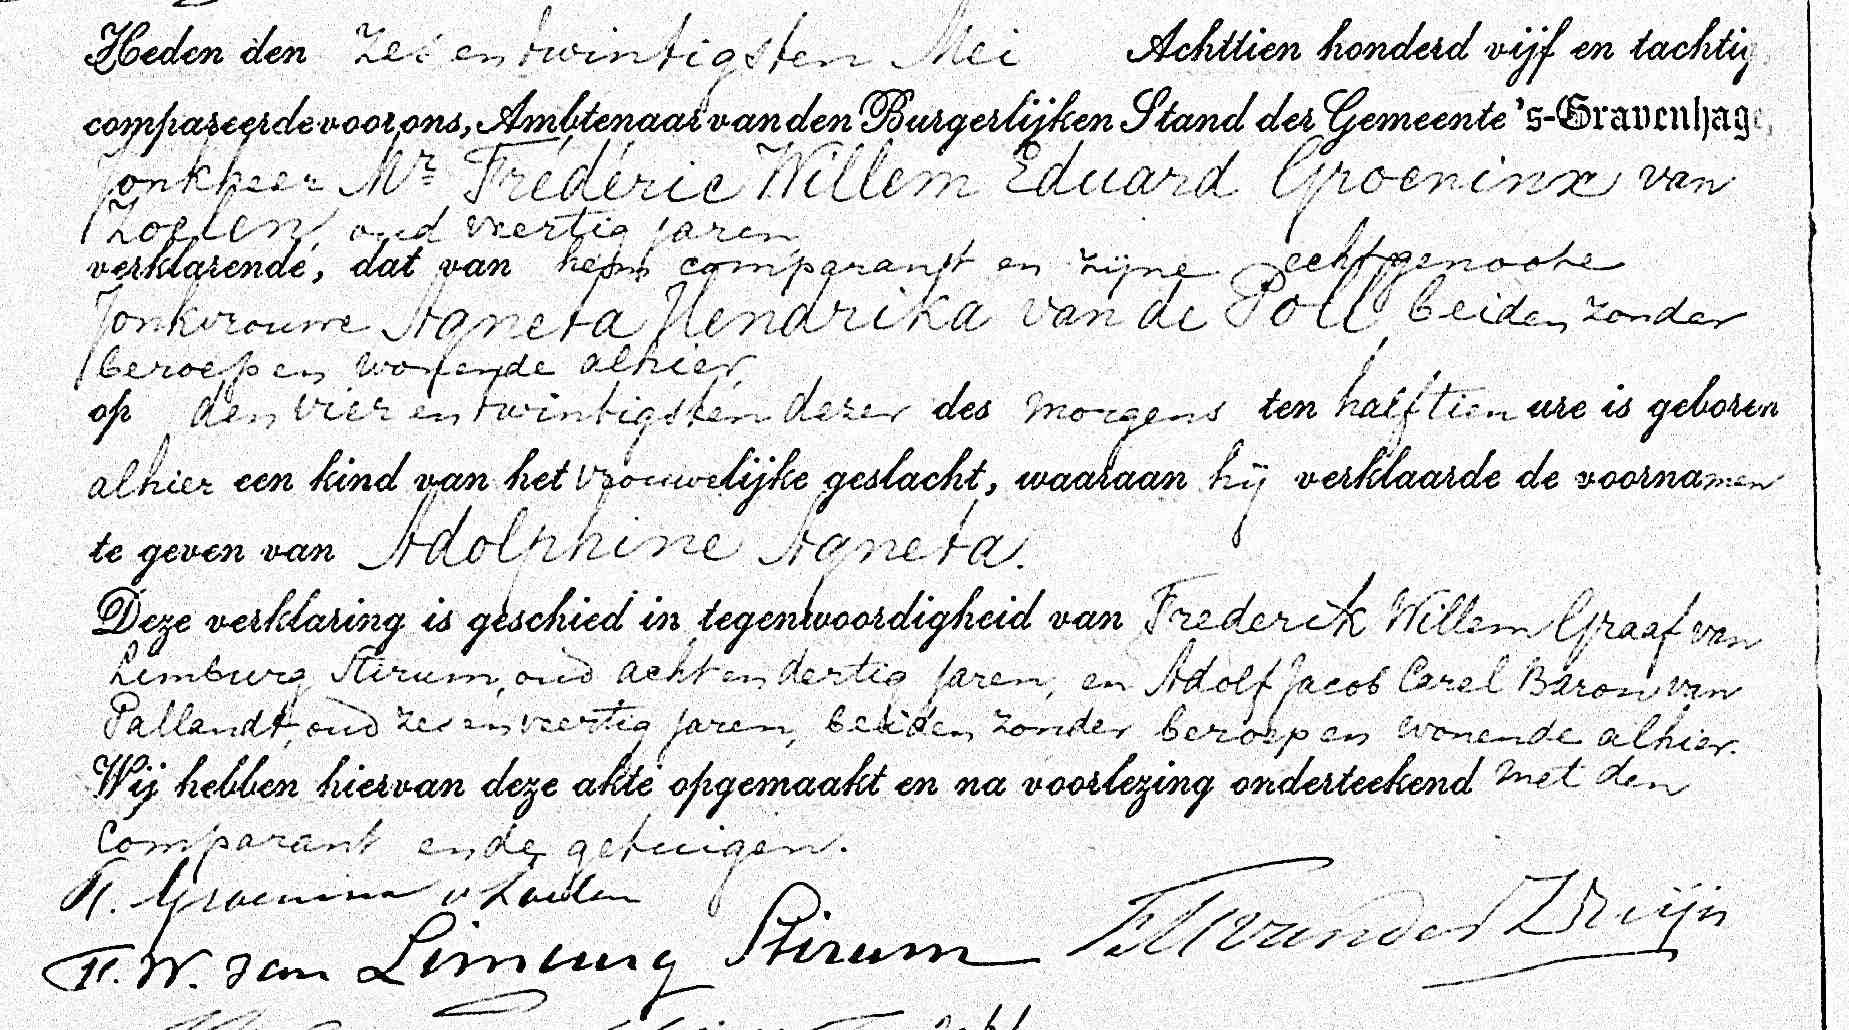 Heden den zes en twintigsten Mei Achttien honderd vijf en tachtig
compareerde voor ons, Ambtenaar van den Burgerlijken Stand der Gemeente 's-Gravenhage,
Jonkheer Mr. Fréderic Willem Eduard Groeninx van
Zoelen, oud veertig jaren,
verklarende, dat van hem comparant en zijne echtgenoote
Jonkvrouwe Agneta Hendrika van de Poll, beiden zonder
beroep en wonende alhier,
op den vier en twintigsten dezer des morgens ten half tien ure is geboren
alhier een kind van het vrouwelijke geslacht, waaraan hij verklaarde de voornamen
te geven van Adolphine Agneta.
Deze verklaring is geschied in tegenwoordigheid van Frederik Willem Graaf van
Limburg Stirum, oud acht en dertig jaren, en Adolf Jacob Carel Baron van
Pallandt, oud zes en veertig jaren, beiden zonder beroep en wonende alhier.
Wij hebben hiervan deze akte opgemaakt en na voorlezing onderteekend met den
comparant en de getuigen.
F. Groeninx v Zoelen
F. W. van Limburg Stirum